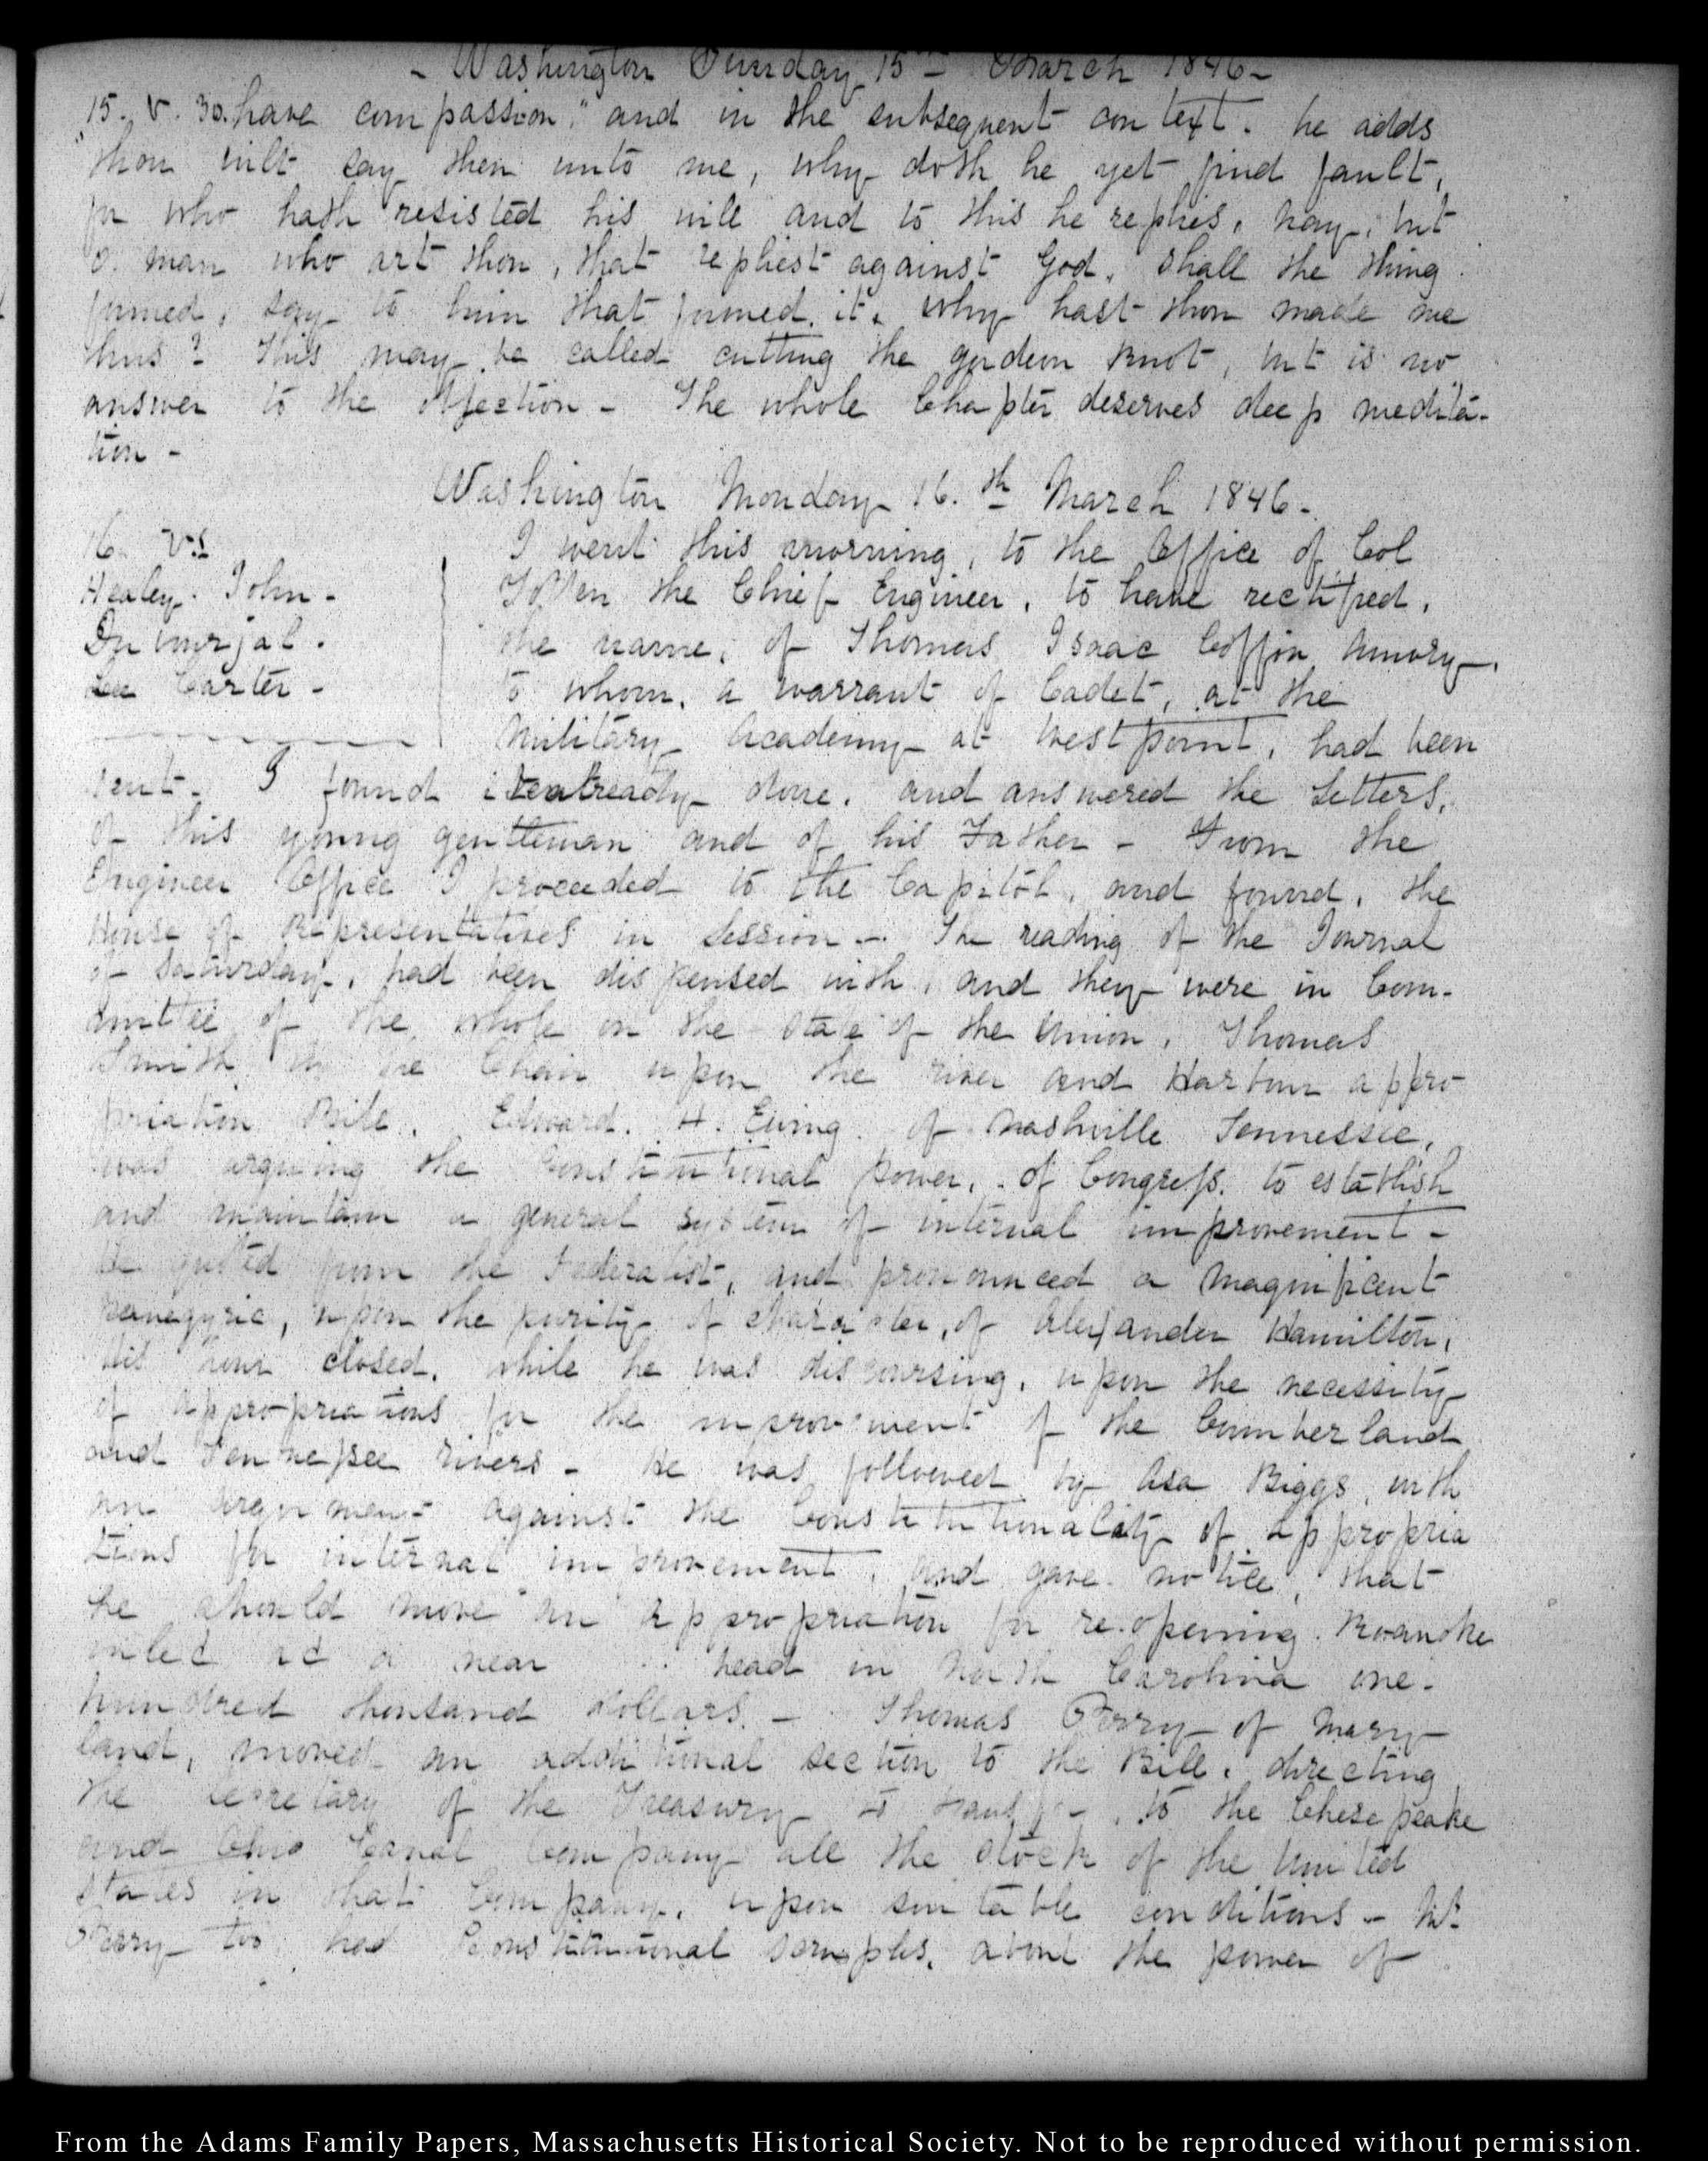 - Washington Sunday 15th March 1846 -
15. V. 30. have compassion," and in the subsequent context. he adds
"thou wilt say then unto me, why doth he yet find fault,
for who hath resisted his will and to this he replies, nay, but
O. man who art thou, that repliest against God. shall the thing
formed, say to him that formed it. why hast thou made me
thus? This may be called cutting the gordeon knot, but is no
answer to the objection - The whole Chapter deserves deep medita-
tion -
Washington Monday 16.th March 1846 -
16. V.I
Healey. John -
Carter -
I went this morning, to the Office of Col
Totten the Chief Engineer, to have rectified,
the name, of Thomas Isaac Coffin Amory,
to whom, a warrant of Cadet, at the
Military Academy at West point, had been
sent. I found already done, and answered the Letters,
of this young gentleman and of his Father - From the
Engineer Office I proceeded to the Capitol, and found, the
House of Representatives in Session - The reading of the Journal
of Saturday, had been dispensed with, and they were in Com-
mittee of the whole on the state of the Union, Thomas
Smith in the Chair upon the river and Harbour appro-
priation Bill. Edward. H. Ewing. of Nashville Tennessee,
was arguing the Constitutional power, of Congress. to establish
and maintain a general system of internal improvement -
He quoted from the Federalist, and pronounced a magnificent
panegyric, upon the purity of character, of Alexander Hamilton,
His hour closed. while he was discoursing, upon the necessity
of appropriations for the improvement of the Cumberland
and Tennessee rivers - He was followed by Asa Biggs, with
an argument against the Constitutionality of appropria
tions for internal improvement, and gave notice, that
he should move an appropriation for re.opening. Roanoke
inlet at or near head in North Carolina one.
hundred thousand dollars. - Thomas Perry of Mary-
land, moved an additional section to the Bill. directing
the Secretary of the Treasury to transfer, to the Chesepeake
and Ohio Canal Company all the stock of the United
States in that Company. upon suitable conditions - Mr.
Perry too, had Constitutional scruples. about the power of
From the Adams Family Papers, Massachusetts Historical Society. Not to be reproduced without permission.